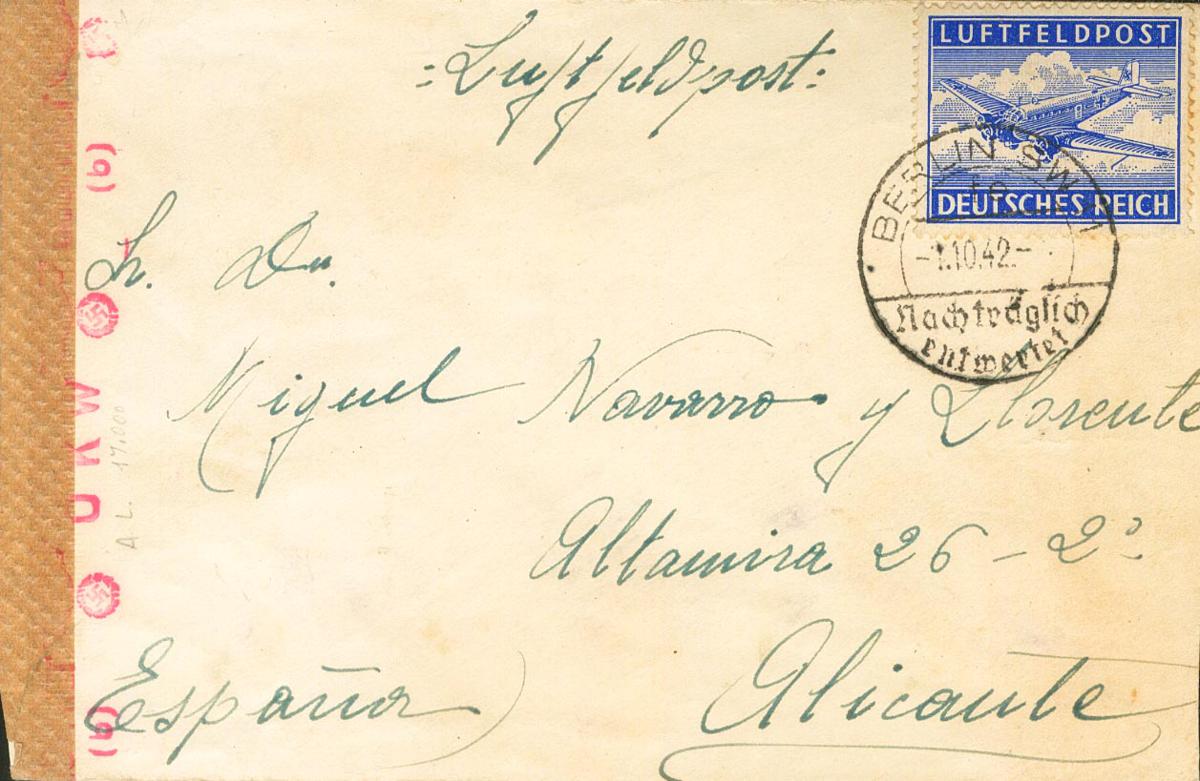 =Luftfeldpost:
LUFTFELDPOST
DEUTSCHES REICH
BERLIN SW
-1.10.42.-
Nachträglich
entwertet
Miguel Navarro y Llorente
Altamira 26-2º
Alicante
España
(b)
OKW
(b)
A L. 17.000